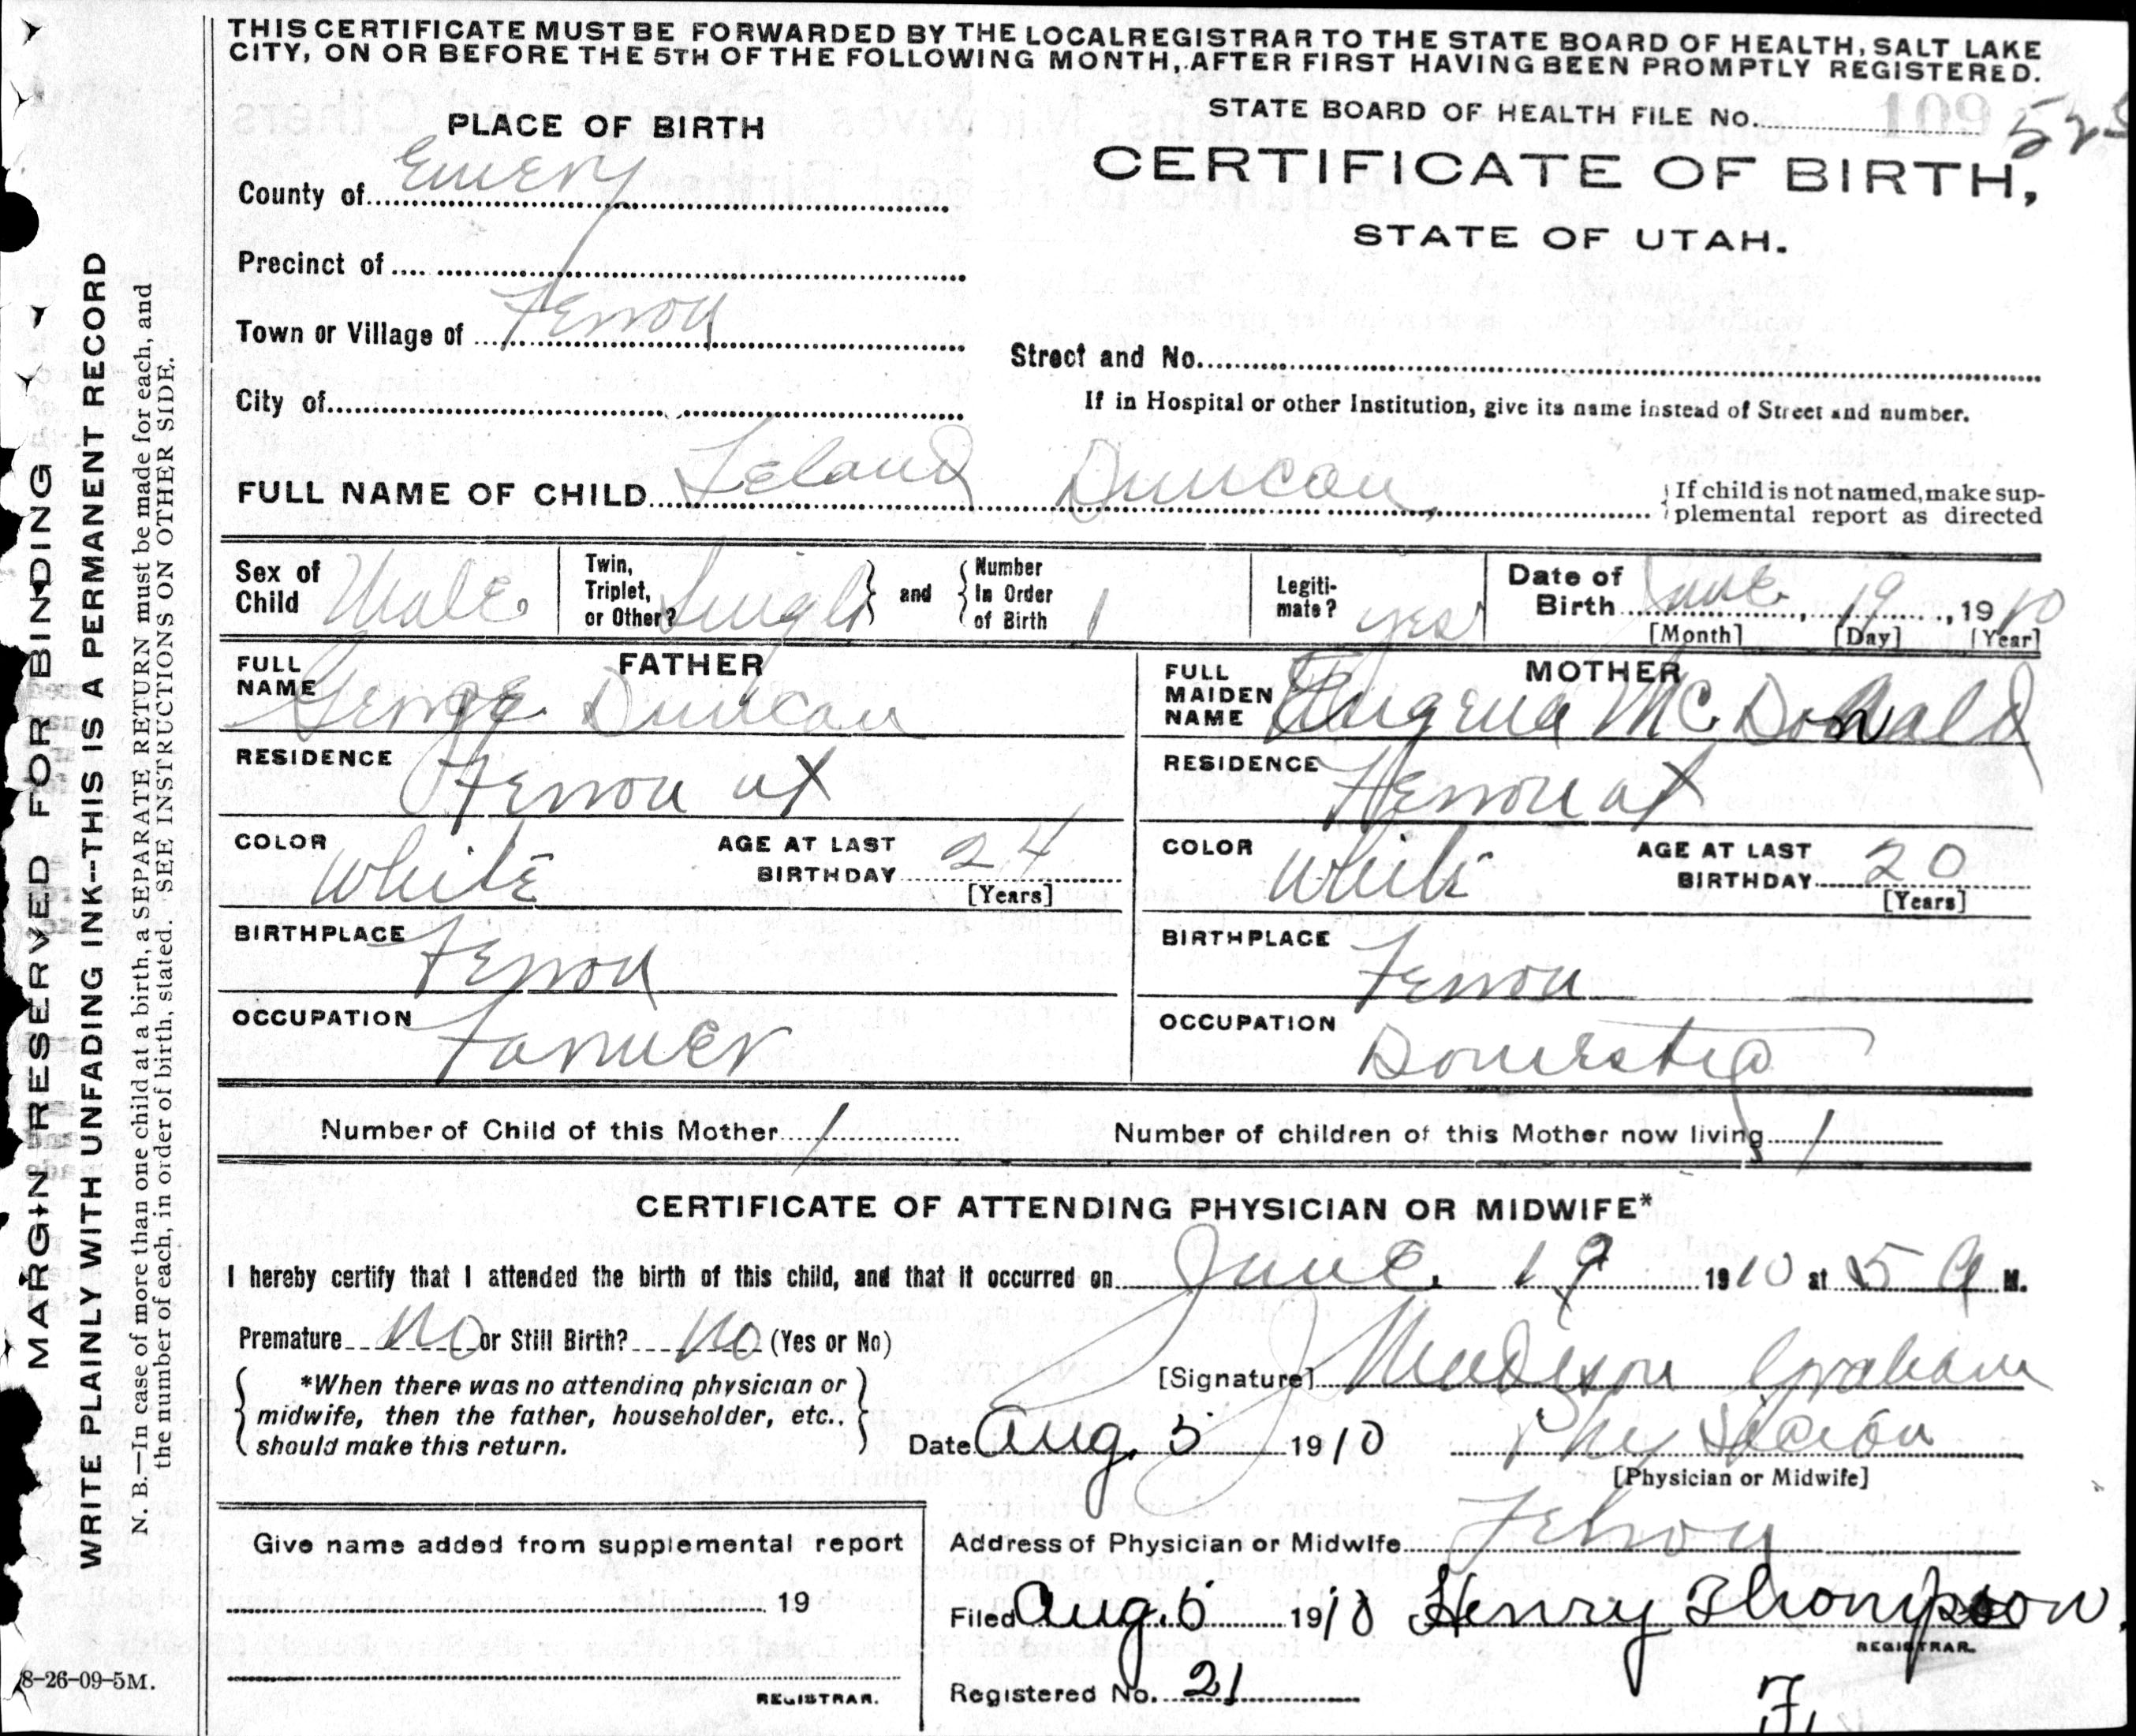 THIS CERTIFICATE MUST BE FORWARDED BY THE LOCAL REGISTRAR TO THE STATE BOARD OF HEALTH, SALT LAKE
CITY, ON OR BEFORE THE 5TH OF THE FOLLOWING MONTH, AFTER FIRST HAVING BEEN PROMPTLY REGISTERED.
STATE BOARD OF HEALTH FILE No. 109
PLACE OF BIRTH
CERTIFICATE OF BIRTH,
STATE OF UTAH.
County of Emery
Precinct of
Town or Village of Ferron
Street and No.
City of
If in Hospital or other Institution, give its name instead of Street and number.
FULL NAME OF CHILD Leland Duncan
If child is not named, make sup-
plemental report as directed
Sex of Child Male
Twin, Triplet, or Other? Single and Number In Order of Birth 1
Legiti-mate? yes
Date of Birth June, 19, 1910
[Month] [Day] [Year]
FATHER
FULL NAME George Duncan
RESIDENCE Ferron ut
COLOR White AGE AT LAST BIRTHDAY 24
[Years]
BIRTHPLACE Ferron
OCCUPATION Farmer
MOTHER
FULL MAIDEN NAME Eugena McDonald
RESIDENCE Ferron ut
COLOR White AGE AT LAST BIRTHDAY 20
[Years]
BIRTHPLACE Ferron
OCCUPATION Domestic
Number of Child of this Mother 1
Number of children of this Mother now living 1
CERTIFICATE OF ATTENDING PHYSICIAN OR MIDWIFE*
I hereby certify that I attended the birth of this child, and that it occurred on June 19 1910 at 5 A M.
Premature No or Still Birth? No (Yes or No)
*When there was no attending physician or
midwife, then the father, householder, etc.,
should make this return.
[Signature] Madison Graham
Date Aug. 5 1910 Physician
[Physician or Midwife]
Address of Physician or Midwife Ferron
Filed Aug. 5 1910 Henry Thompson.
REGISTRAR.
Registered No. 21
F.
Give name added from supplemental report
19
REGISTRAR.
MARGIN RESERVED FOR BINDING
WRITE PLAINLY WITH UNFADING INK--THIS IS A PERMANENT RECORD
N. B.—In case of more than one child at a birth, a SEPARATE RETURN must be made for each, and
the number of each, in order of birth, stated. SEE INSTRUCTIONS ON OTHER SIDE.
8-26-09-5M.